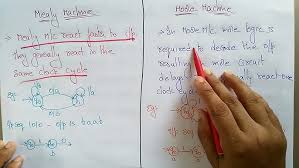 Mealy Machine
→ Mealy M/c react faster to i/p.
they generally react in the
same clock cycle
eg:
Moore Machine
→ In Moore M/c more logic is
required to decode the o/p
resulting more circuit
delays. generally react one
clock cycle
eg: